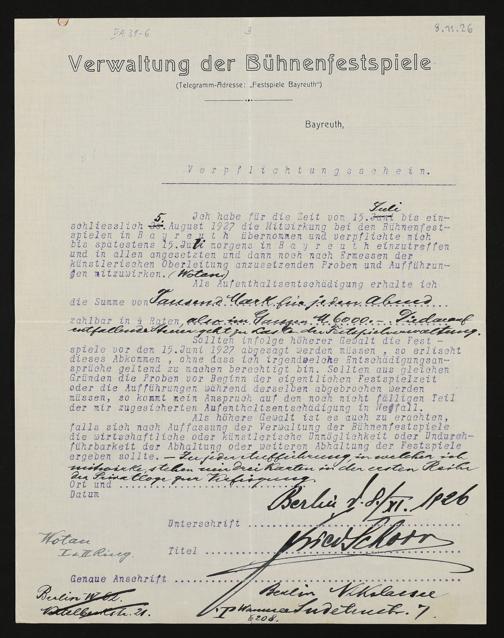 8.11.26
3
Verwaltung der Bühnenfestspiele
(Telegramm-Adresse: „Festspiele Bayreuth“)
Bayreuth,
Verpflichtungsschein.
Juli
5. Ich habe für die Zeit vom 15. Juni bis ein-
schliesslich August 1927 die Mitwirkung bei den Bühnenfest-
spielen in Bayreuth übernommen und verpflichte mich
bis spätestens 15. Juli morgens in Bayreuth einzutreffen
und in allen angesetzten und dann noch nach Ermessen der
künstlerischen Oberleitung anzusetzenden Proben und Aufführun-
gen mitzuwirken. (Wotan)
Als Aufenthaltsentschädigung erhalte ich
die Summe von Tausend Mark für jeden Abend
zahlbar in 4 Raten, also im Ganzen M 6000. Die darauf
entfallende Steuer geht zu Lasten der Festspielverwaltung.
Sollten infolge höherer Gewalt die Fest-
spiele vor dem 15. Juni 1927 abgesagt werden müssen, so erlischt
dieses Abkommen, ohne dass ich irgendwelche Entschädigungsan-
sprüche geltend zu machen berechtigt bin. Sollten aus gleichen
Gründen die Proben vor Beginn der eigentlichen Festspielzeit
oder die Aufführungen während derselben abgebrochen werden
müssen, so kommt mein Anspruch auf den noch nicht fälligen Teil
der mir zugesicherten Aufenthaltsentschädigung in Wegfall.
Als höhere Gewalt ist es auch zu erachten,
falls sich nach Auffassung der Verwaltung der Bühnenfestspiele
die wirtschaftliche oder künstlerische Unmöglichkeit oder Undurch-
führbarkeit der Abhaltung oder weiteren Abhaltung der Festspiele
ergeben sollte. – Zu jeder Aufführung, in welcher ich
mitwirke, stehen mir drei Karten in der ersten Reihe
der zur Verfügung.
Ort und
Datum Berlin, d. 8/XI. 1926
Unterschrift
Wotan
I u. II Ring. Titel
Genaue Anschrift Berlin Nikolassee
Berlin
7.